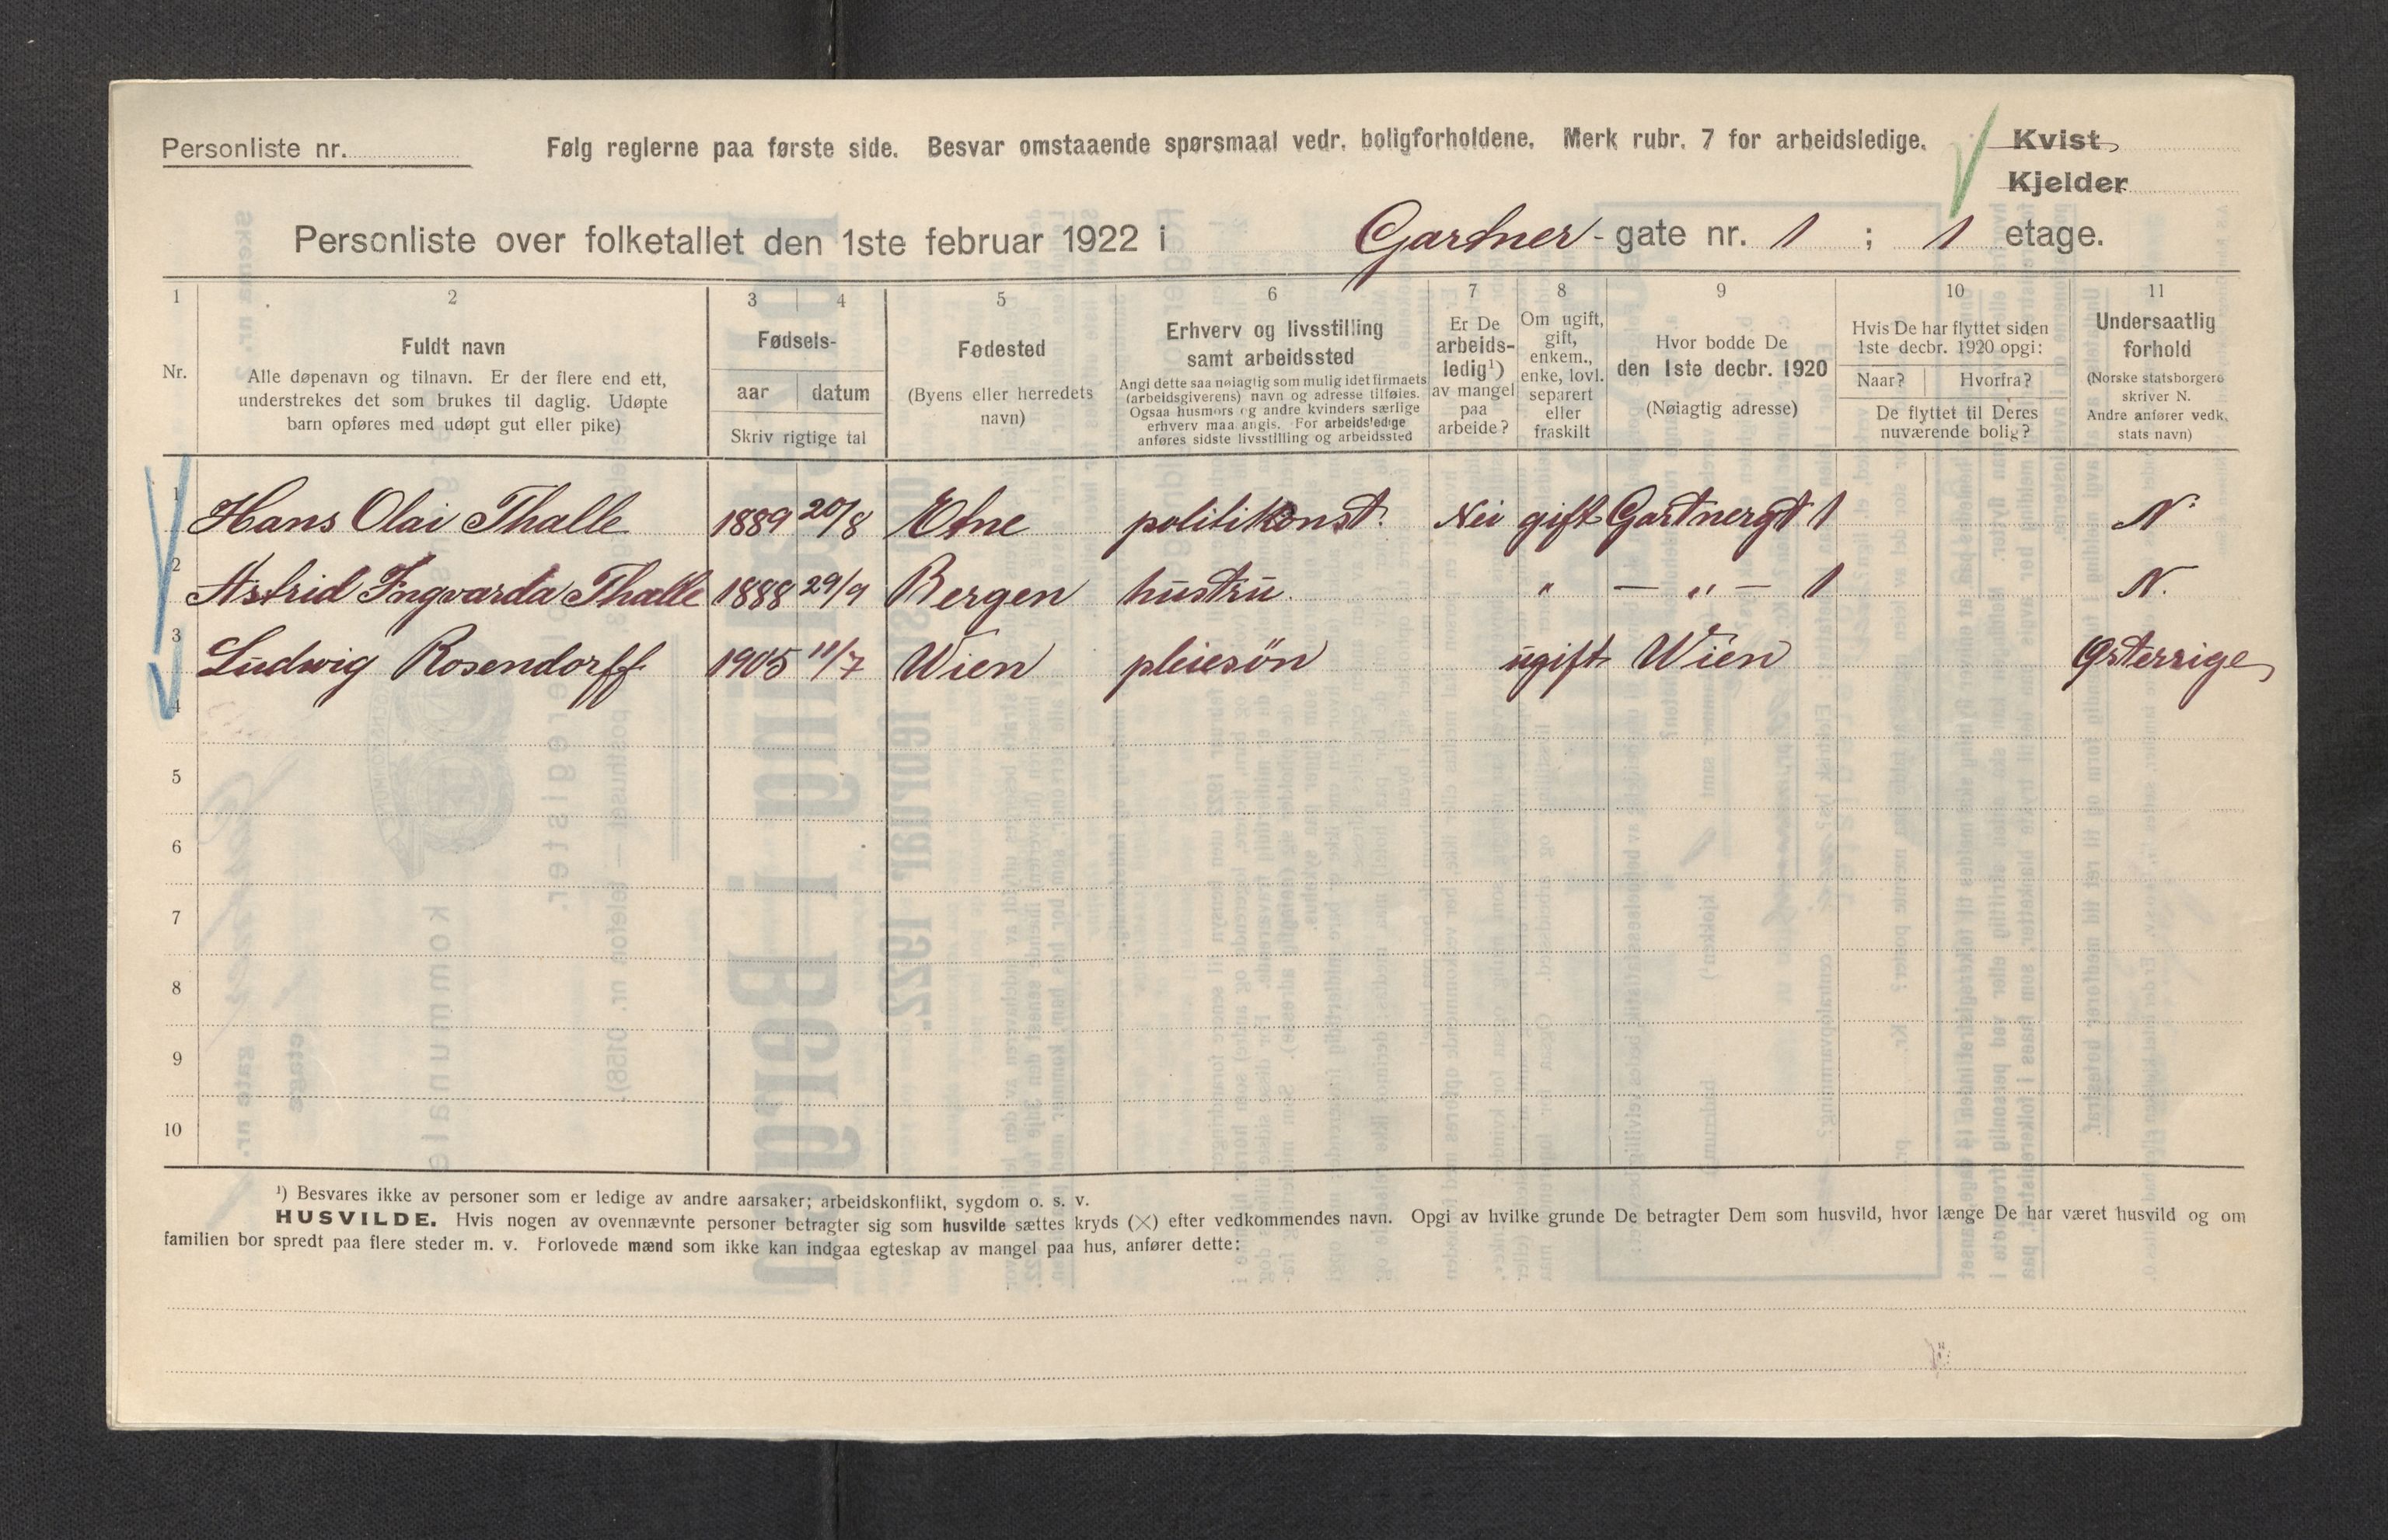 Personliste nr. Følg reglerne paa første side. Besvar omstaaende spørsmaal vedr. boligforholdene. Merk rubr. 7 for arbeidsledige. Kvist
Kjelder
Personliste over folketallet den 1ste februar 1922 i Gartner-gate nr. 1 ; 1 etage.
1 2 3 4 5 6 7 8 9 10 11
Nr.
Fuldt navn
Alle døpenavn og tilnavn. Er der flere end ett,
understrekes det som brukes til daglig. Udøpte
barn opføres med udøpt gut eller pike)
Fødsels-
aar datum
Skriv rigtige tal
Fødested
(Byens eller herredets
navn)
Erhverv og livsstilling
samt arbeidssted
Angi dette saa nøiagtig som mulig idet firmaets
(arbeidsgiverens) navn og adresse tilføies.
Ogsaa husmors og andre kvinders særlige
erhverv maa angis. For arbeidsledige
anføres sidste livsstilling og arbeidssted
Er De
arbeids-
ledig¹)
av mangel
paa
arbeide?
Om ugift,
gift,
enkem.,
enke, lovl.
separert
eller
fraskilt
Hvor bodde De
den 1ste decbr. 1920
(Nøiagtig adresse)
Hvis De har flyttet siden
1ste decbr. 1920 opgi:
Naar? Hvorfra?
De flyttet til Deres
nuværende bolig?
Undersaatlig
forhold
(Norske statsborgere
skriver N.
Andre anfører vedk.
stats navn)
1 Hans Olai Thalle 1889 20/8 Etne politikonst. Nei gift Gartnergt 1 N.
2 Astrid Ingvarda Thalle 1888 29/9 Bergen hustru. " — " — 1 N.
3 Ludwig Rosendorff 1905 11/7 Wien pleiesön ugift Wien Østerrige
4
5
6
7
8
9
10
¹) Besvares ikke av personer som er ledige av andre aarsaker; arbeidskonflikt, sygdom o. s. v.
HUSVILDE. Hvis nogen av ovennævnte personer betragter sig som husvilde sættes kryds (×) efter vedkommendes navn. Opgi av hvilke grunde De betragter Dem som husvild, hvor længe De har været husvild og om
familien bor spredt paa flere steder m. v. Forlovede mænd som ikke kan indgaa egteskap av mangel paa hus, anfører dette: